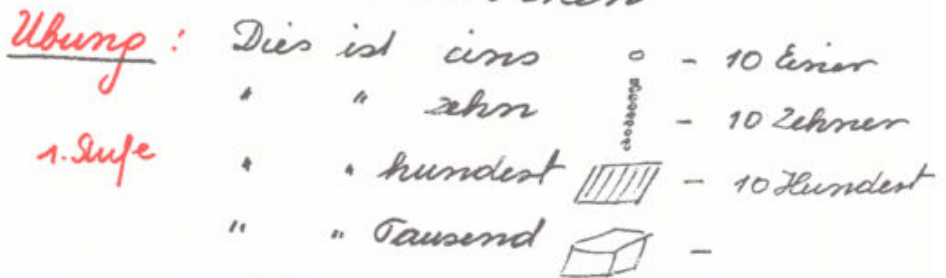 Übung : Dies ist eins - 10 Einer
" " zehn - 10 Zehner
1. Stufe " " hundert - 10 Hundert
" " Tausend -